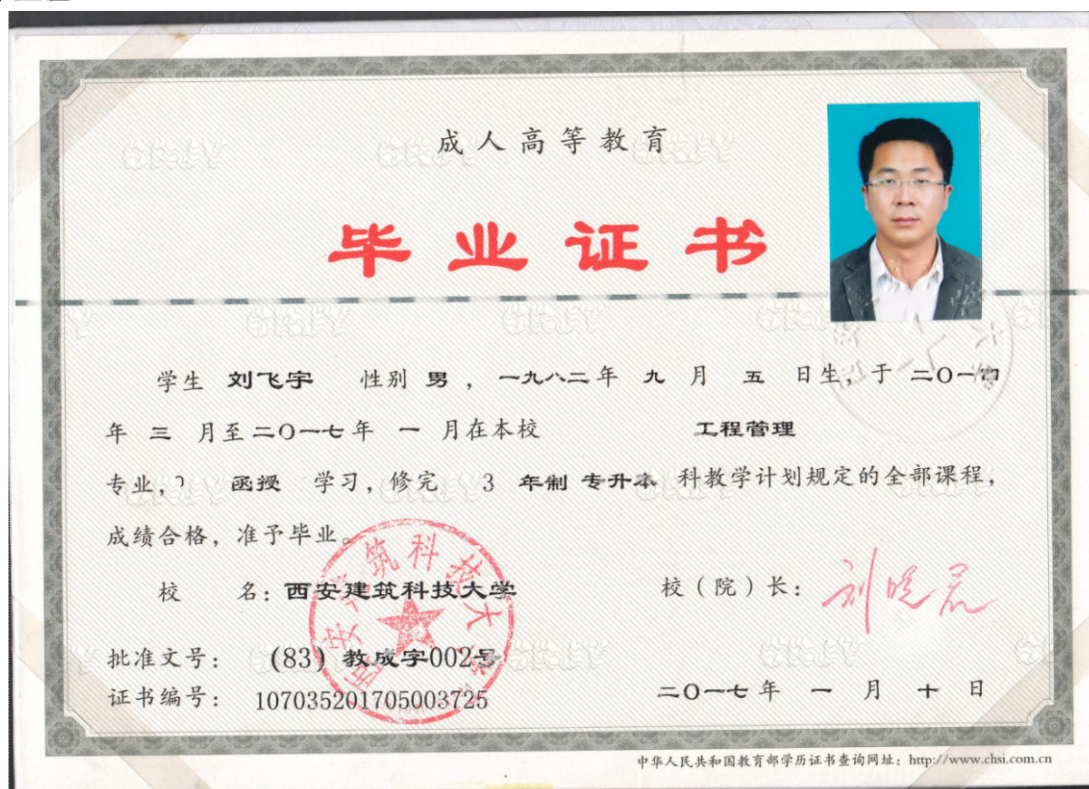 成人高等教育
毕业证书
学生 刘飞宇 性别 男 ，一九八二年 九 月 五 日生，于 二〇一四
年 三 月至二〇一七年 一 月在本校 工程管理
专业， 函授 学习，修完 3 年制 专升本 科教学计划规定的全部课程，
成绩合格，准予毕业。
校 名：西安建筑科技大学 校（院）长：刘晓君
批准文号： (83) 教成字002号
证书编号： 107035201705003725 二〇一七年 一 月 十 日
西安建筑科技大学
中华人民共和国教育部学历证书查询网址：http://www.chsi.com.cn